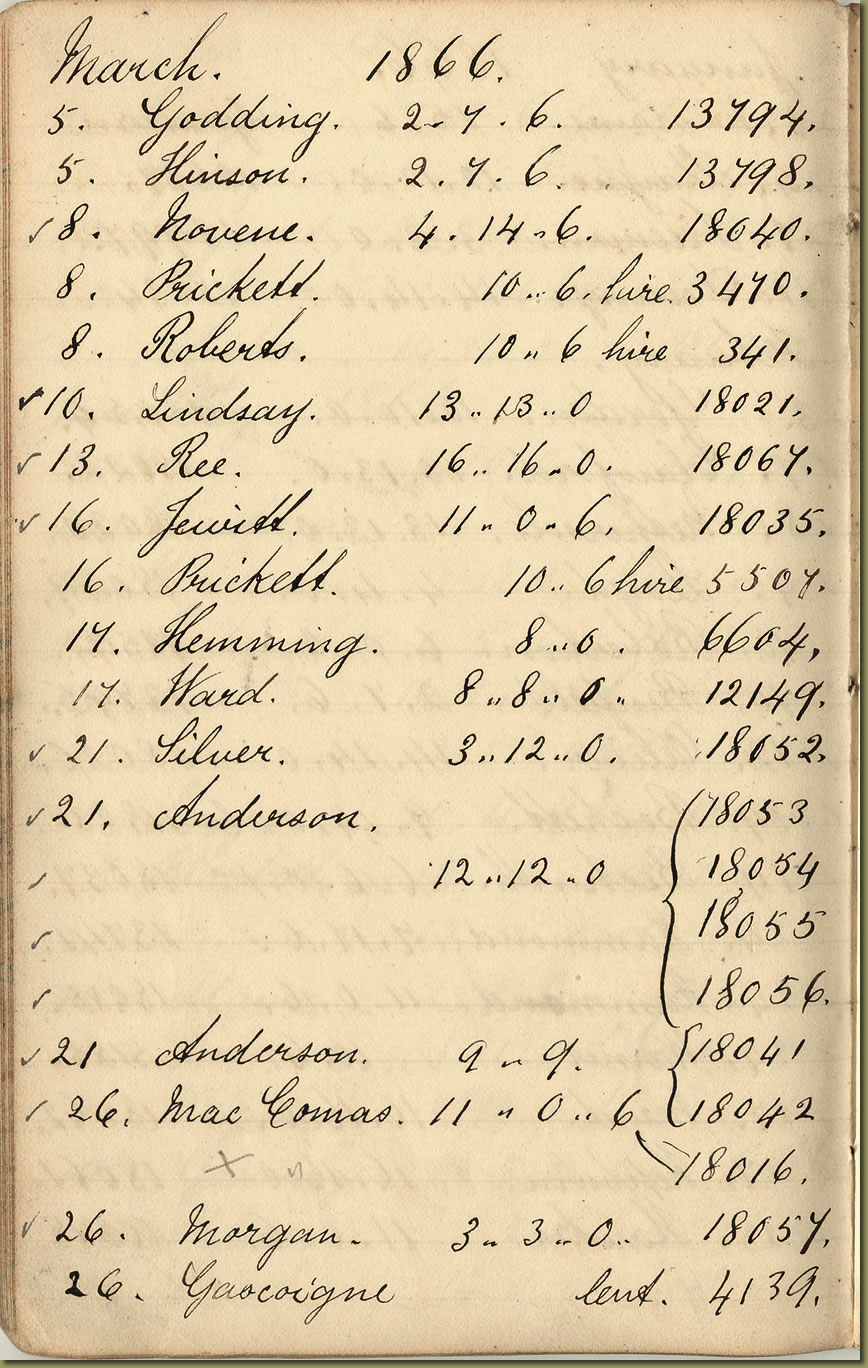 March. 1866.
5. Godding. 2 - 7 . 6. 13794.
5. Hinson. 2 . 7 . 6. 13798.
✓8. Novene. 4 . 14 " 6. 18040.
8. Prickett. 10 .. 6. hire. 3470.
8. Roberts. 10 " 6 hire 341.
✓10. Lindsay. 13 .. 13 .. 0 18021.
✓13. Ree. 16 .. 16 .. 0. 18067.
✓16. Jewitt. 11 .. 0 .. 6. 18035.
16. Prickett. 10 .. 6 hire 5507.
17. Hemming. 8 .. 0 . 6604.
17. Ward. 8 .. 8 .. 0 .. 12149.
✓21. Silver. 3 .. 12 .. 0. 18052.
✓21. Anderson. 18053
✓ 12 .. 12 .. 0 18054
✓ 18055
✓ 18056.
✓21 Anderson. 9 .. 9. 18041
✓26. Mac Comas. 11 " 0 .. 6 18042
x " 18016.
✓26. Morgan. 3 .. 3 .. 0 .. 18057.
26. Gascoigne lent. 4139.